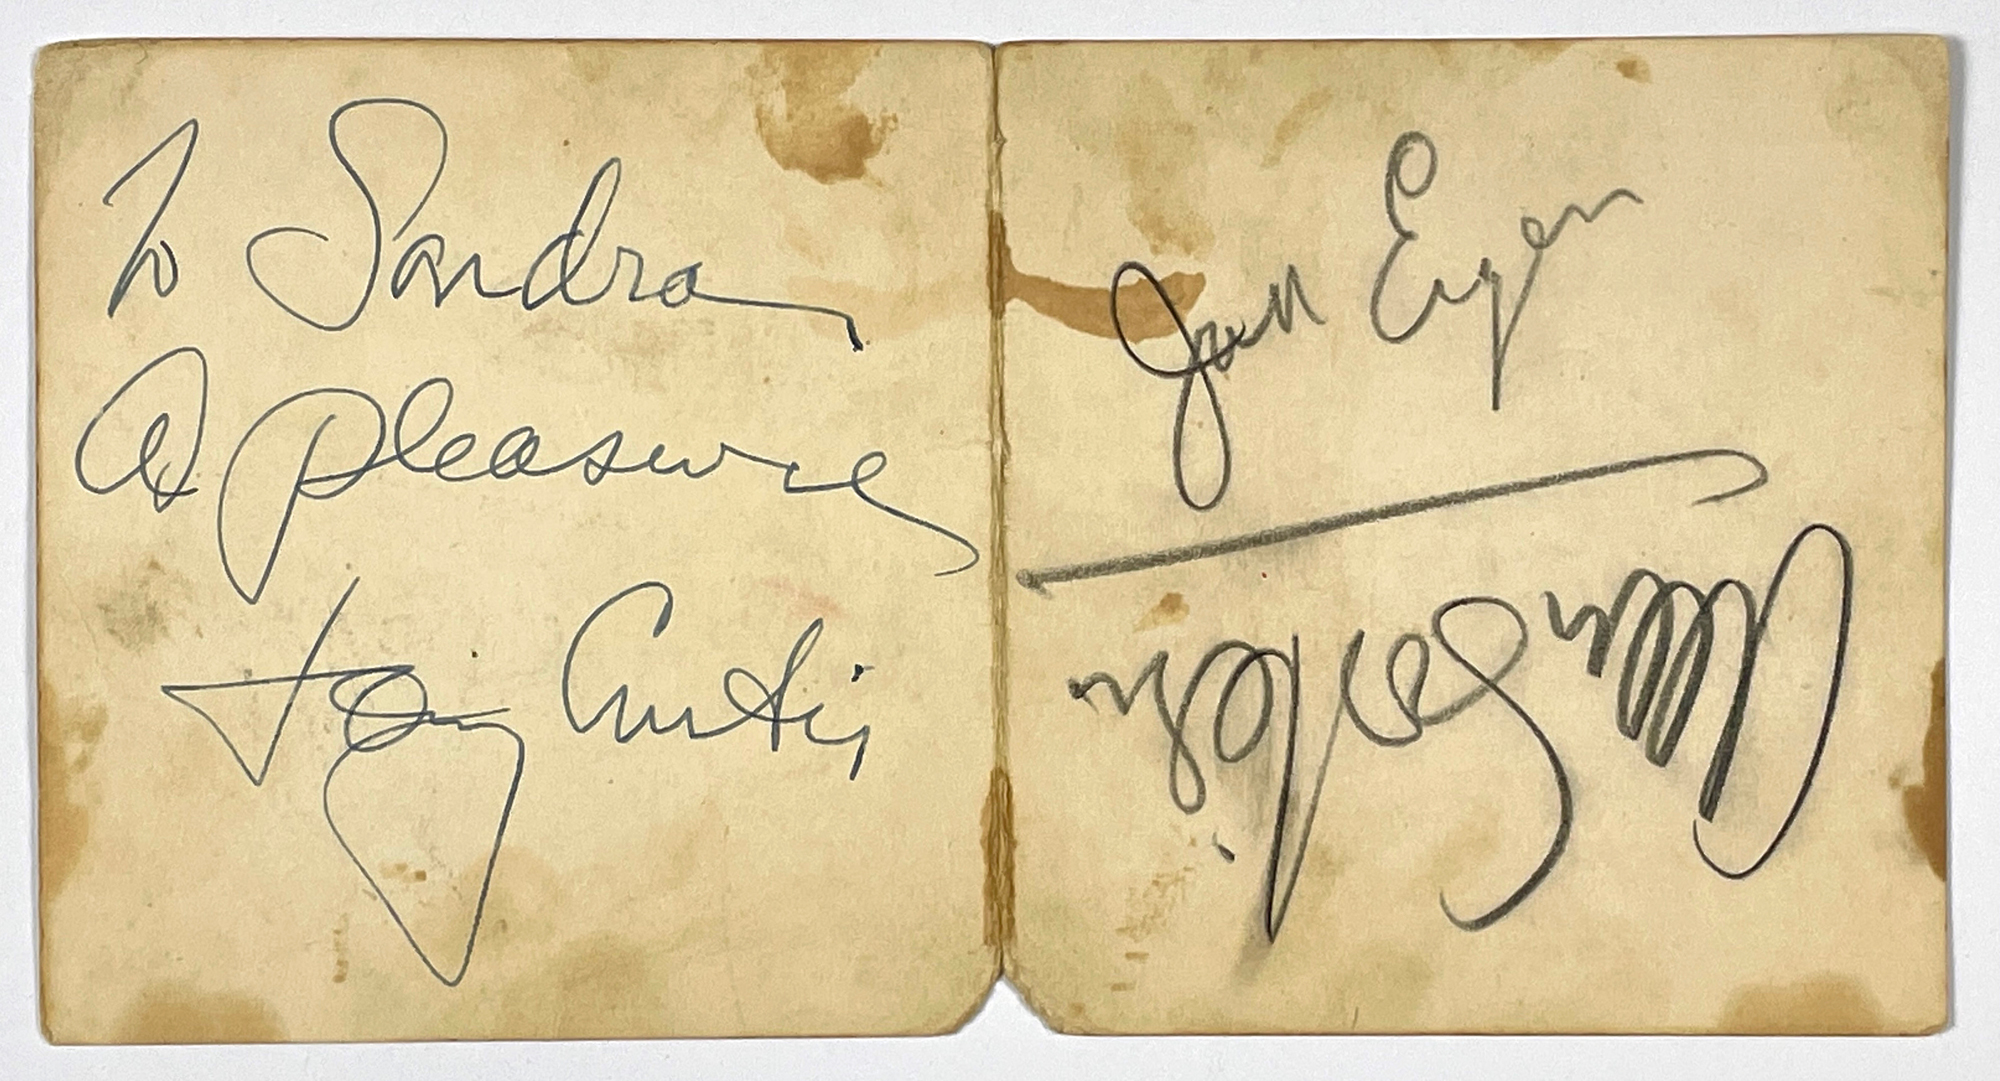 To Sandra
A pleasure
Tony Curtis
Jack Eigen